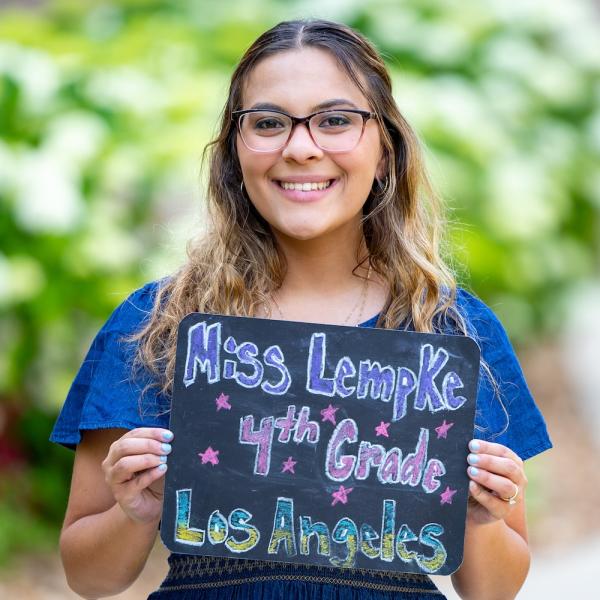 Miss Lempke
4th Grade
Los Angeles